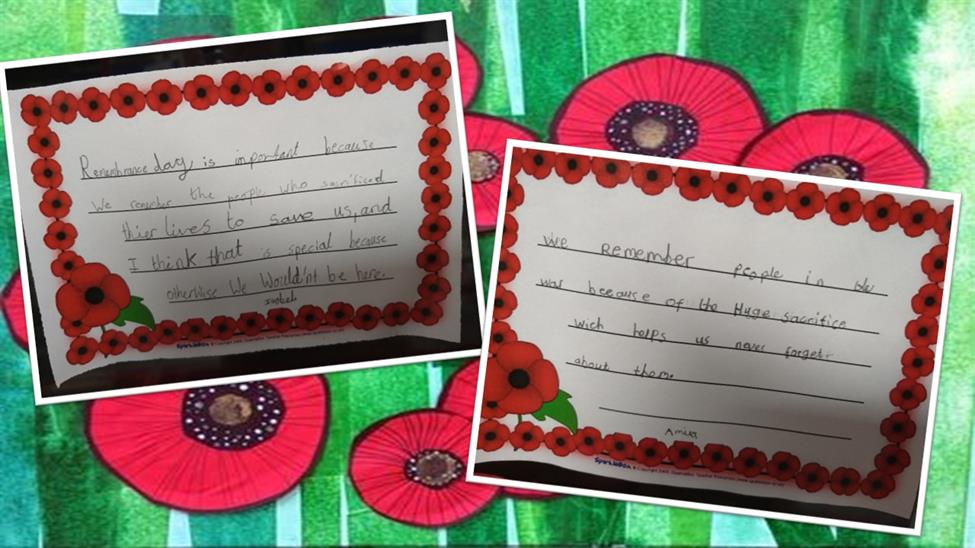 Remembrance day is important because
we remember the people who sacrificed
thier lives to save us, and
I think that is special because
otherwise We Would'nt be here.
Isobel
SparkleBox
We Remember people in the
war beecause of the Huge sacrifice
wich helps us never forget
about them.
Amelia
SparkleBox